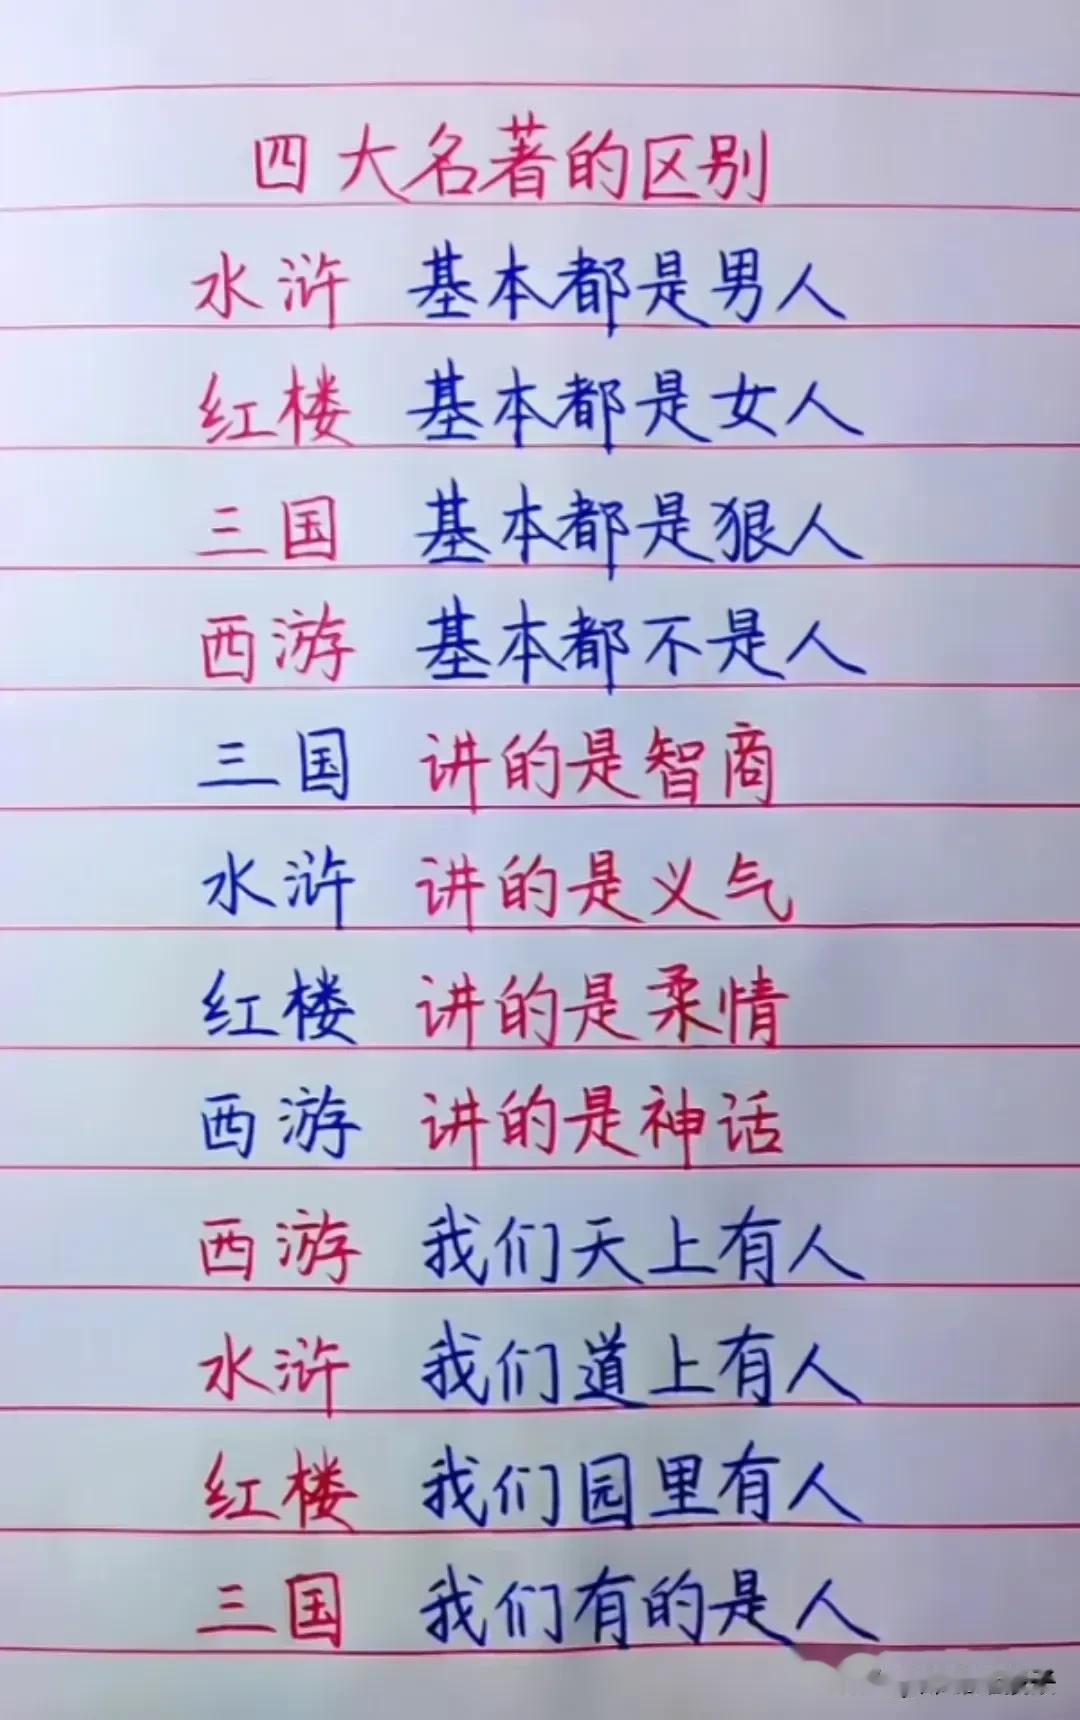 四大名著的区别
水浒 基本都是男人
红楼 基本都是女人
三国 基本都是狠人
西游 基本都不是人
三国 讲的是智商
水浒 讲的是义气
红楼 讲的是柔情
西游 讲的是神话
西游 我们天上有人
水浒 我们道上有人
红楼 我们园里有人
三国 我们有的是人